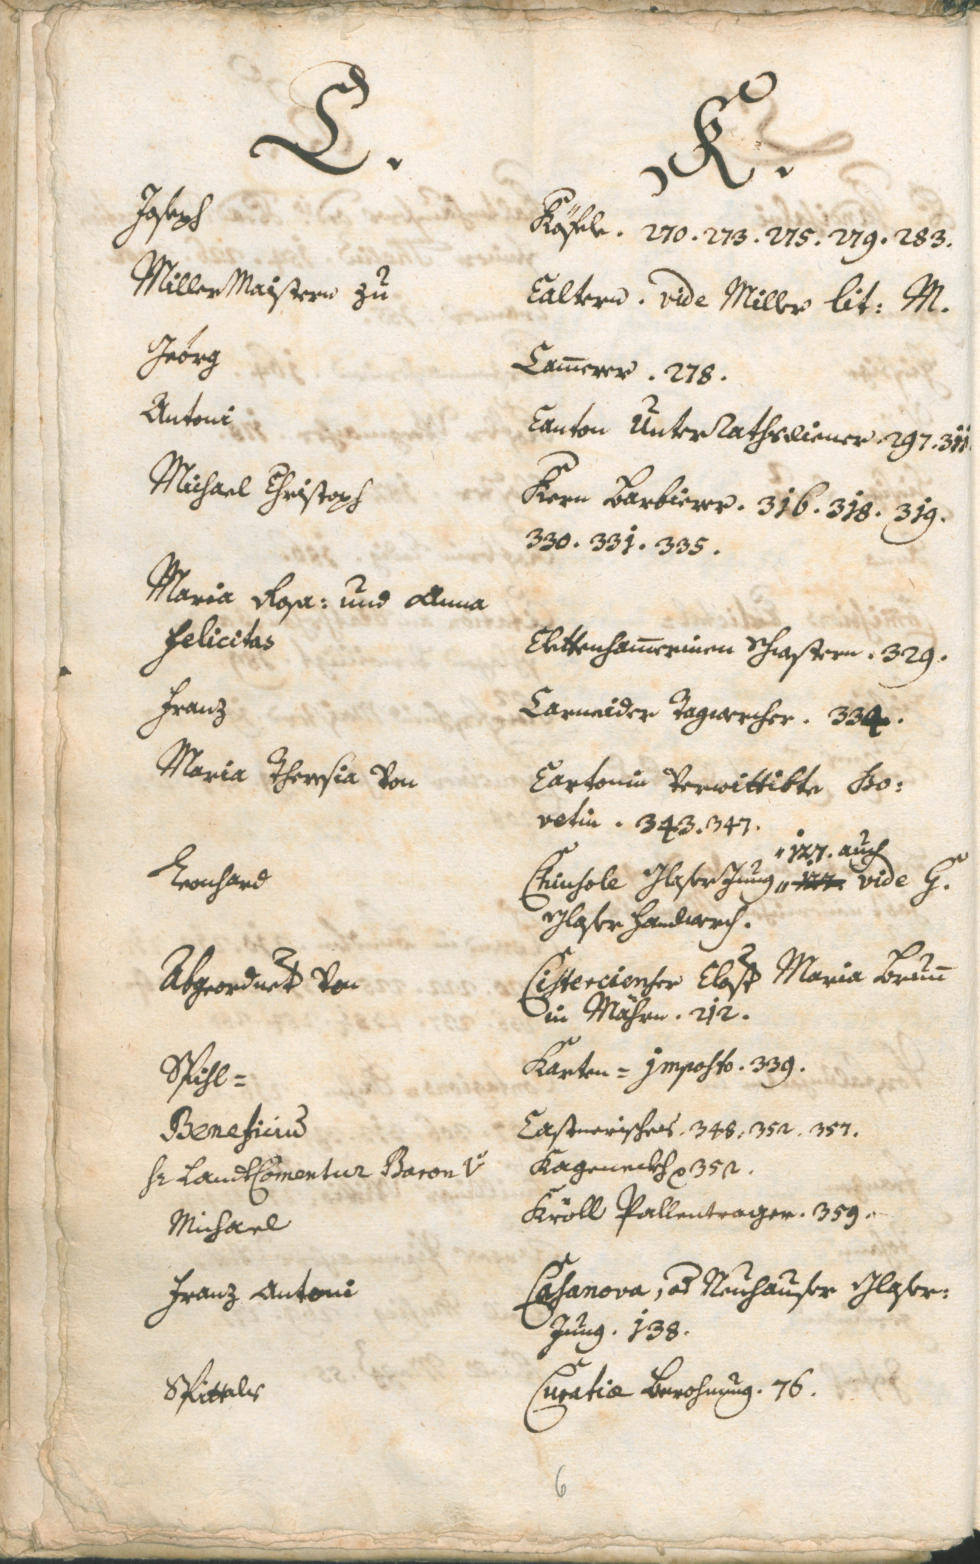 C. K.
Joseph Köfele. 270. 273. 275. 279. 283.
Miller Maistern zu Caltern. vide Miller lit: M.
Jeörg Cam̄erer. 278.
Antoni Canton Unter Rathsdiener. 297. 311
Michael Christoph Kern Barbierer. 316. 318. 319.
330. 331. 335.
Maria Rosa: und Anna
Felicitas Schwestern. 329.
Franz Carneider Tagwercher. 334.
Maria Theresia von Cartonin verwittibte Bo:
vetin. 343. 347.
127. auch
Leonhard Glaser Jung vide G.
Glaser Handwerch.
Abgeordnet von Cistercienser Closster Maria Brun̄
in Mährn. 212.
Spihl= Karten=Imposto. 339.
Beneficium Castnerisches. 348. 352. 357.
hr LandtComentur Baron v Kageneckh 352.
Michael Kröll Pallentrager. 359.
Franz Antoni Casanova, od Neuhauser Glaser:
Jung. 138.
Spittals Curatiæ Berohnung. 76.
6